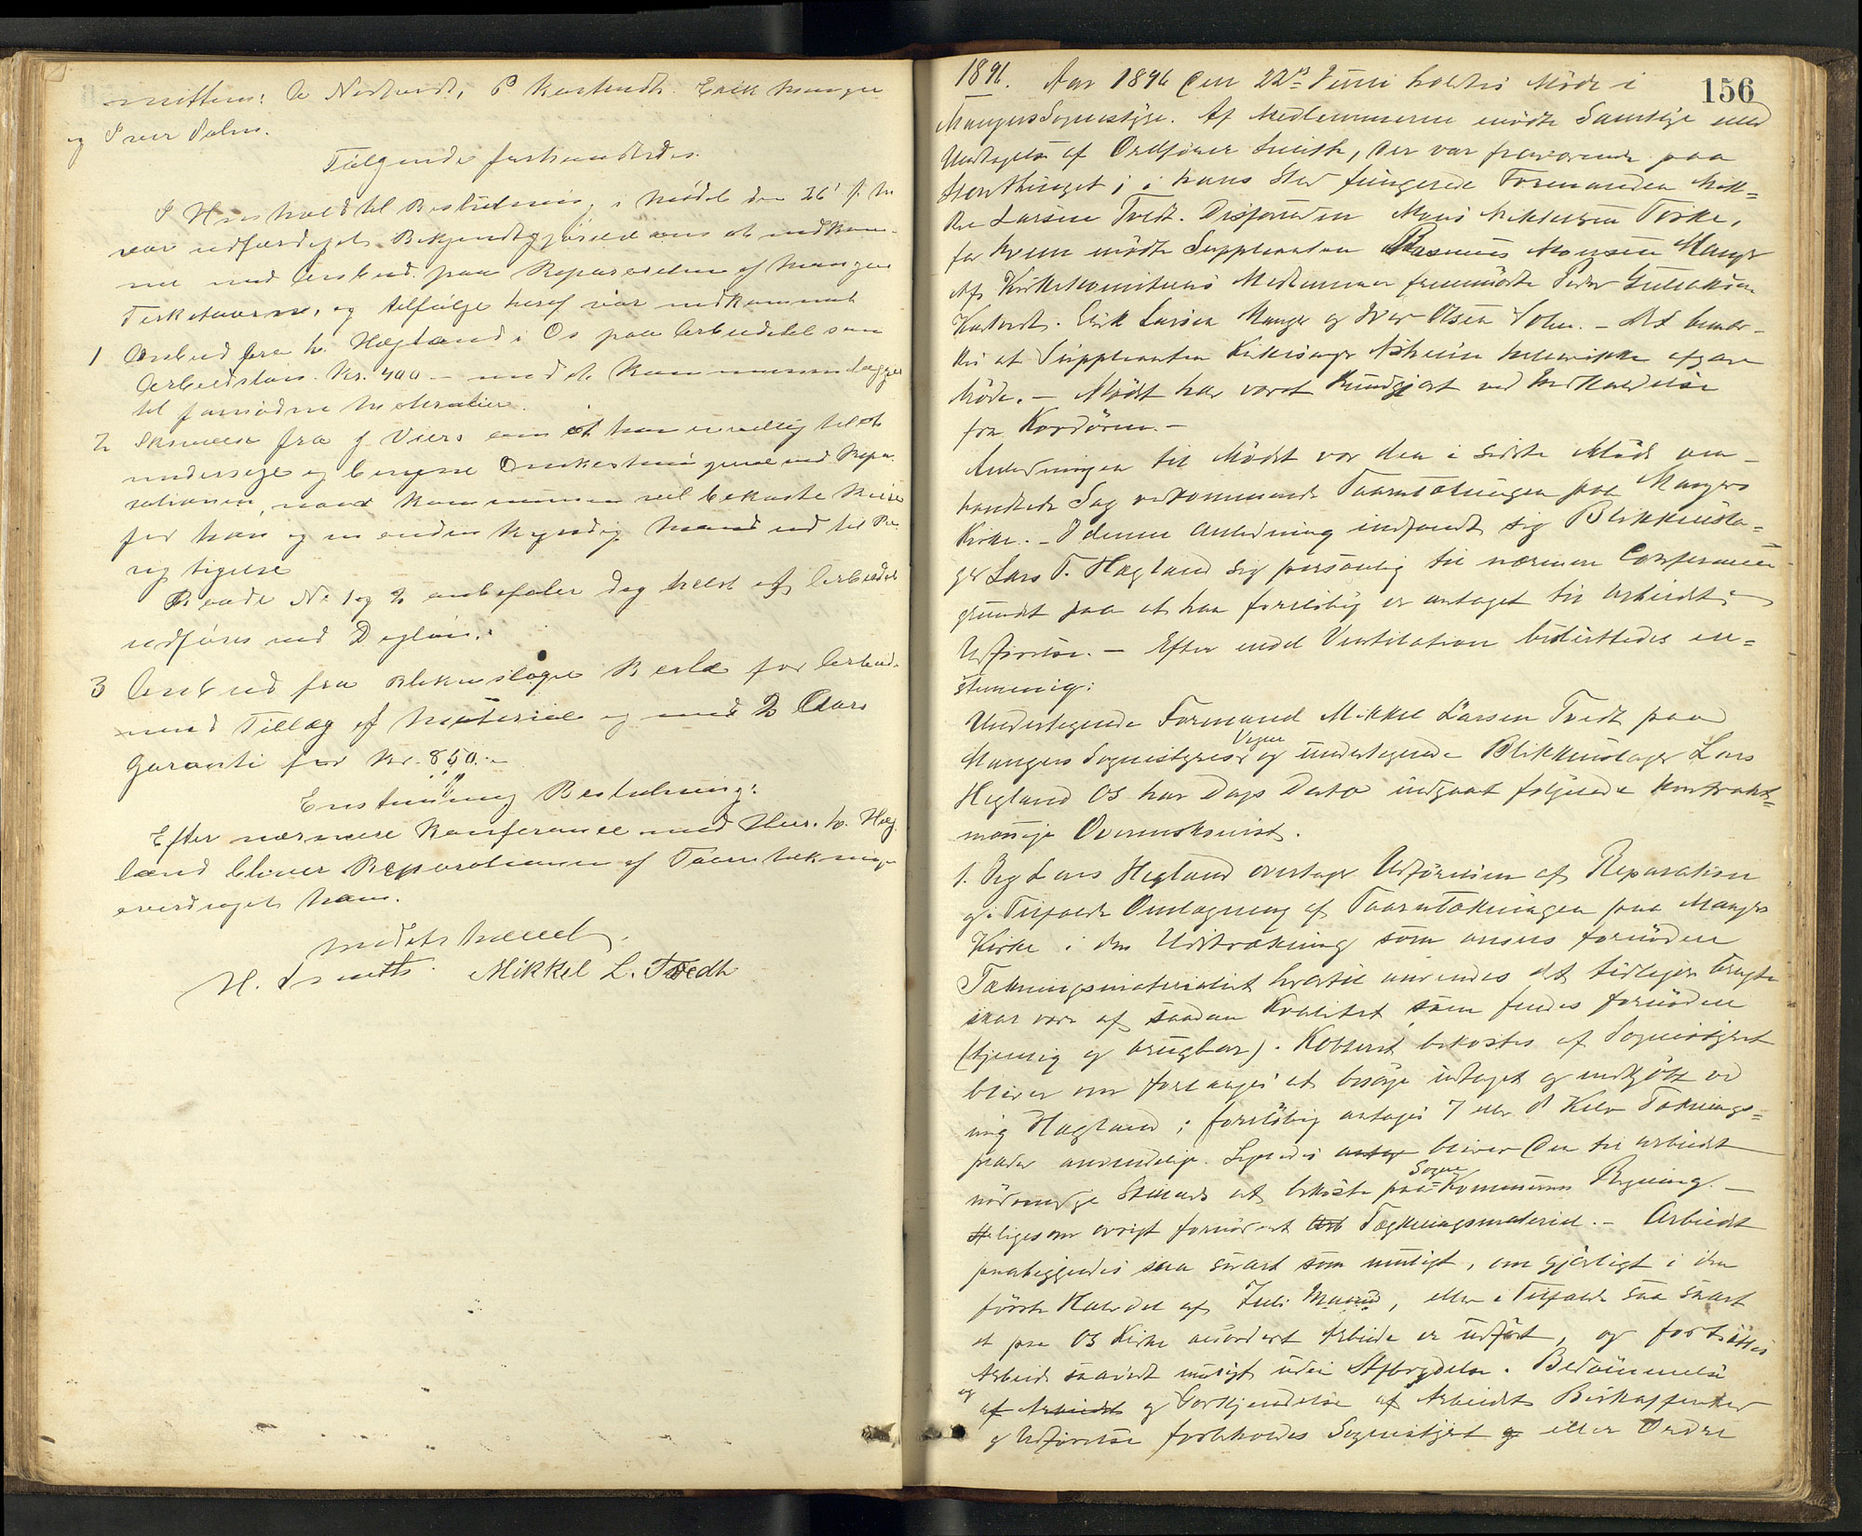 og Iver Solem.
Følgende forhandledes.
I Henhold til Beslutning i Mødet den 26' f. M.
var udfærdiget Bekjendtgjørelse om at indkom-
me med Anbud paa Reparationen af Manger
Kirketaarn, og tilfølge heraf var indkommet
1 Anbud fra L. Hægland i Os paa Arbeidet som
Arbeidsløn Kr. 400 – med at Kommunen lægger
til fornødne Materialier.
2 Skrivelse fra J. Viers om at han er villig til at
undersøge og besørge Omkostninger ved Repa-
rationen, naar Kommunen vil bekoste Reise
for ham og en anden kyndig Mand ud til Be-
sigtigelse
Baade No 1 og 2 anbefaler dog helst at Arbeidet
udføres ved Dagløn.
3 Anbud fra Blikkenslager Berle for Arbeide
med Tillæg af Materiel og med 2 Aars
Garanti for Kr. 850.–
Enstemmig Beslutning:
Efter nærmere Konferance med Hr. L. Hæg-
land bliver Reparationen af Taarntækningen
overdraget ham.
Mødet hævet.
H. Smith. Mikkel L. Tvedt
156
1896. Aar 1896 den 22de Juni holdtes Møde i
Mangers Sognestyre. Af Medlemmerne mødte Samtlige med
Undtagelse af Ordfører Smith, der var fraværende paa
Storthinget; i hans Sted fungerede Formanden Mik=
kel Larsen Tvedt. Desforuden Mons Mikkelsen Toske,
for hvem mødte Suppleanten Rasmus Monsen Manger
Af Kirkekomiteens Medlemmer fremmødte Peder Gulleksen
Erik Larsen Manger og Iver Olsen Solem. – Det bemær-
kes at Suppleanten Kirkesanger Askeim ikke afgav
Møde. – Mødet har været kundgjort ved Indkaldelse
fra Kordøren. –
Anledningen til Mødet var den i sidste Møde om-
handlede Sag vedkommende Taarntækningen paa Mangers
Kirke. – I denne Anledning indfandt sig Blikkensla=
ger Lars T. Hægland sig personlig til nærmere Conferance
grundet paa at han foreløbig er antaget til Arbeidets
Udførelse. – Efter endel Ventilation besluttedes en=
stemmig:
Undertegnede Formand Mikkel Larsen Tvedt paa
Mangers Sognestyres Vegne og undertegnede Blikkenslager Lars
Hegland Os har Dags Dato indgaaet følgende Kontrakt=
mæssige Overenskomst.
1. Jeg Lars Hegland overtager Udførelsen af Reparation
og i Tilfælde Omlægning af Taarntækningen paa Mangers
Kirke i den Udstrækning som ansees fornøden
Tækningsmaterialet hvortil anvendes det tidligere brugte
skal være af saadan Kvalitet som findes fornøden
(tjenlig og brugbar). Kobberet bekostes af Sognestyret
bliver om forlanges at besørge udtaget og indkjøbt ved
mig Hægland; foreløbig antages 7 eller 8 Kilo Tæknings=
plader anvendelige. Ligesaa bliver den til Arbeidet
nødvendige Stillads at bekoste paa Sogne Kommunens Regning. –
ligesom øvrigt fornødent Tækningsmateriel. – Arbeidet
paabegyndes saa snart som muligt, om gjørligt i den
første Halvdel af Juli Maaned, eller i Tilfælde saa snart
et paa Os Kirke Arbeide er udført, og fortsættes
Arbeidet saavidt muligt uden Afbrydelse. Bedømmelse
af Arbeidet og Godkjendelse af Arbeidets Beskaffenhed
og Udførelse forbeholdes Sognestyret og eller Ordre